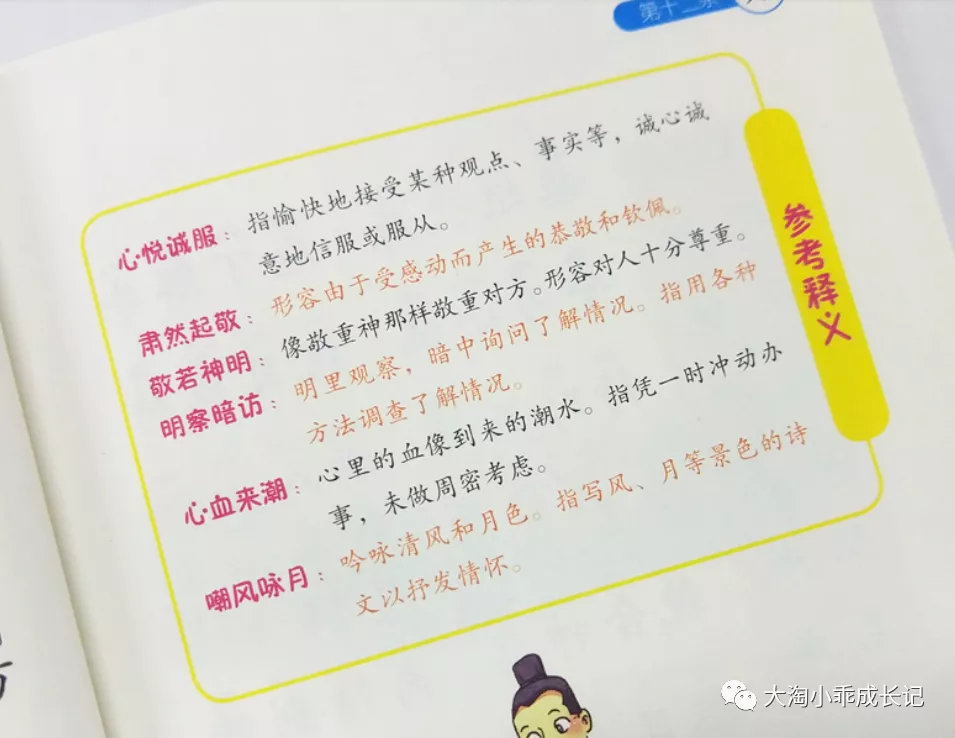 第十二
参考释义
心悦诚服：指愉快地接受某种观点、事实等，诚心诚
意地信服或服从。
肃然起敬：形容由于受感动而产生的恭敬和钦佩。
敬若神明：像敬重神那样敬重对方。形容对人十分尊重。
明察暗访：明里观察，暗中询问了解情况。指用各种
方法调查了解情况。
心血来潮：心里的血像到来的潮水。指凭一时冲动办
事，未做周密考虑。
嘲风咏月：吟咏清风和月色。指写风、月等景色的诗
文以抒发情怀。
大淘小乖成长记